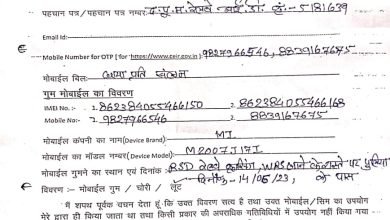 पहचान पत्र/पहचान पत्र नम्बर द.पू.म. रेल्वे आई.डी. नं.- 5181639
Email Id:
Mobile Number for OTP ( for https://www.ceir.gov.in) 9827966546, 8839167675
मोबाईल बिल: छाया प्रति संलग्न
गुम मोबाईल का विवरण
IMEI No. 1. 862384055466150 2. 862384055466168
मोबाईल No- 1. 9827966546 2. 8839167675
मोबाईल कंपनी का नाम(Device Brand) MI
मोबाईल का मॉडल नम्बर( Device Model) M2007J17I
मोबाईल गुमने का स्थान एवं दिनांक: BSD रेल्वे WRS पर पुलिया
दिनांक - 14/05/23, के पास
विवरण - मोबाईल गुम / चोरी / लूट
मैं शपथ पूर्वक वचन देता हूं कि उक्त विवरण सत्य है तथा उक्त मोबाईल/सिम का उपयोग
मेरे द्वारा ही किया जाता था तथा किसी प्रकार की अपराधिक गतिविधियों में उपयोगी नहीं किया गया